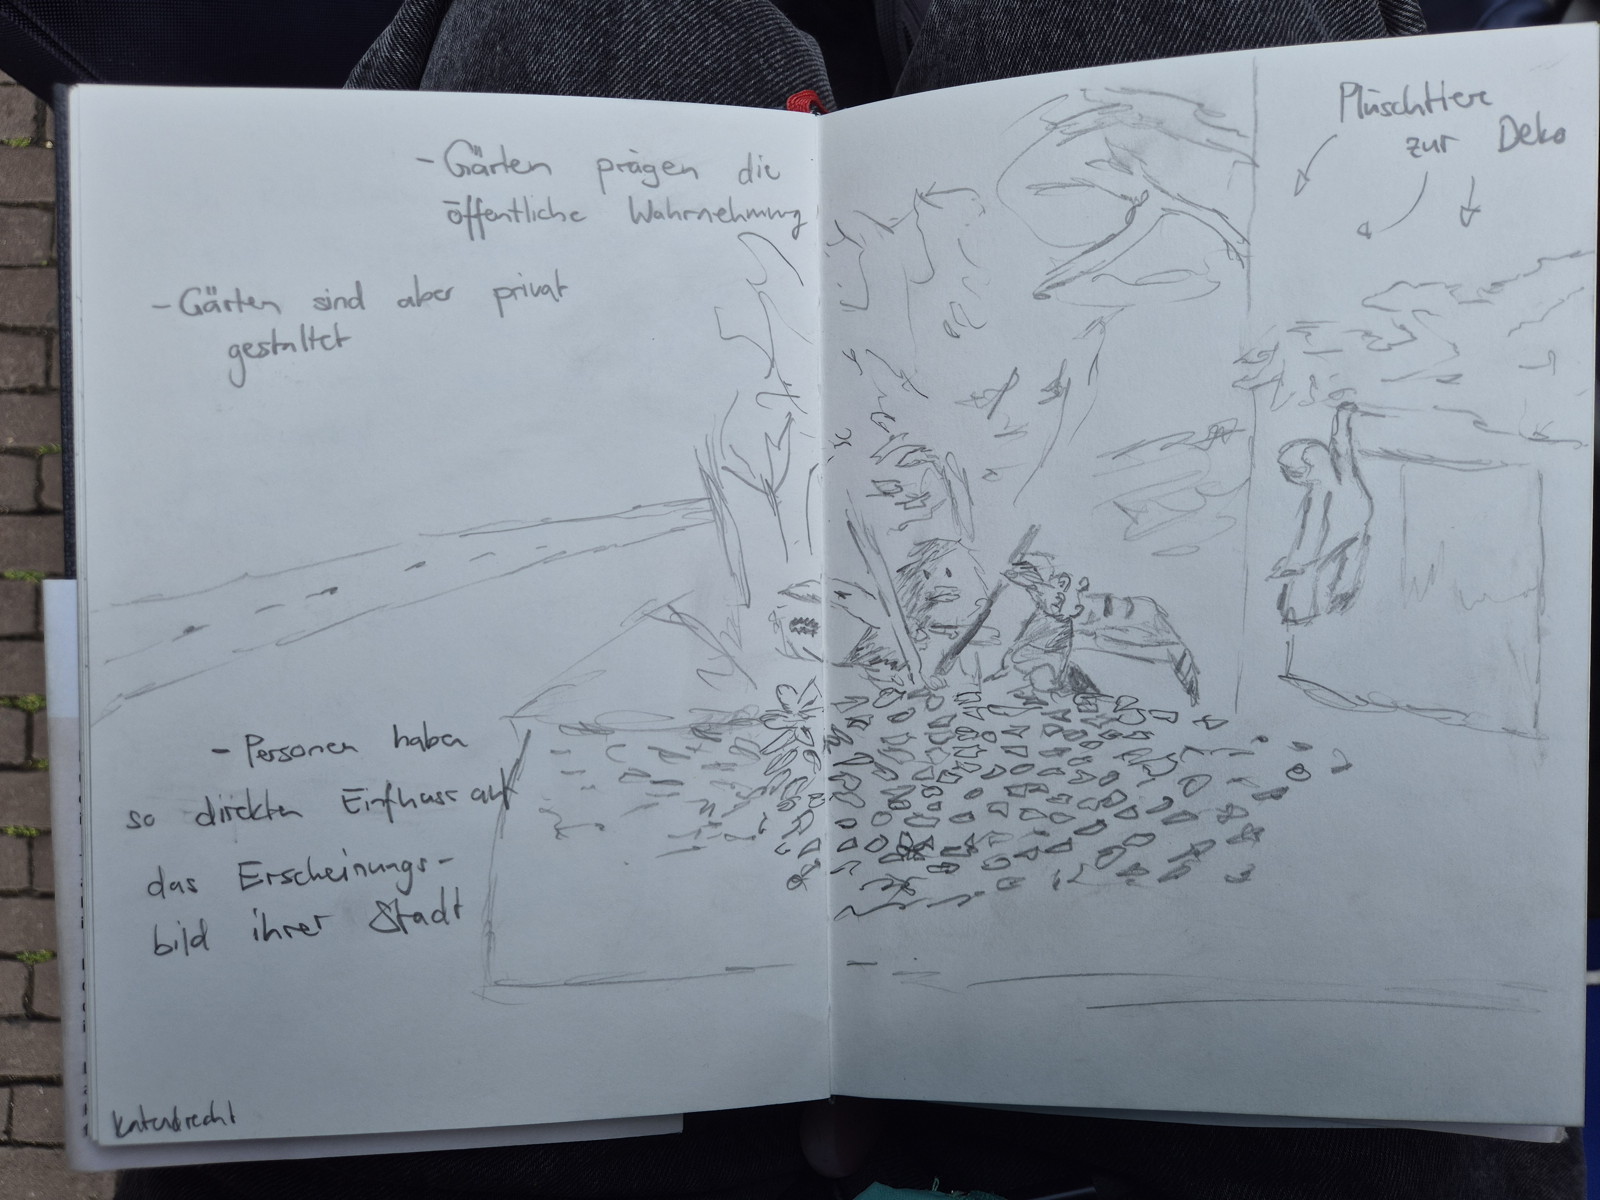 - Gärten prägen die
öffentliche Wahrnehmung
- Gärten sind aber privat
gestaltet
- Personen haben
so direkten Einfluss auf
das Erscheinungs-
bild ihrer Stadt
Katendrecht
Plüschtiere
zur Deko